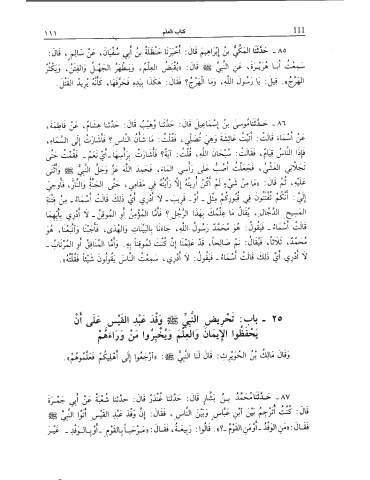 111
كتاب العلم
١١١
٨٥ - حَدَّثَنَا المَكِّيُّ بنُ إبْرَاهِيمَ قَالَ: أَخْبَرَنَا حَنْظَلَةُ بنُ أبي سُفْيَانَ، عَنْ سَالِمٍ، قَالَ:
سَمِعْتُ أبَا هُرَيْرَةَ، عَنِ النَّبِيِّ ﷺ قَالَ: «يُقْبَضُ العِلْمُ، وَيَظْهَرُ الجَهْلُ وَالفِتَنُ، وَيَكْثُرُ
الهَرْجُ». قِيلَ: يَا رَسُولَ اللَّهِ، وَمَا الْهَرْجُ؟ فقَالَ: هكَذَا بِيَدِهِ فَحَرَّفَهَا، كَأنَّهُ يُرِيدُ القَتْلَ.
٨٦ - حَدَّثَنَا مُوسَى بنُ إسْمَاعِيلَ قَالَ: حَدَّثَنَا وُهَيْبٌ قَالَ: حدثنا هِشَامٌ، عَنْ فَاطِمَةَ،
عَنْ أَسْمَاءَ قَالَتْ: أَتَيْتُ عَائِشَةَ وَهِيَ تُصَلِّي، فَقُلْتُ: مَا شَأْنُ النَّاسِ؟ فَأَشَارَتْ إلَى السَّمَاءِ،
فَإذَا النَّاسُ قِيَامٌ، فَقَالَتْ: سُبْحَانَ اللَّهِ، قُلْتُ: آيَةٌ؟ فَأشَارَتْ بِرَأْسِهَا ـ أَيْ نَعَمْ ـ فَقُمْتُ حَتَّى
تَجَلَّانِي الغَشْيُ، فَجَعَلْتُ أَصُبُّ عَلَى رَأْسِي المَاءَ، فَحَمِدَ اللَّهَ عَزَّ وَجَلَّ النَّبِيُّ ﷺ وَأَثْنَى
عَلَيْهِ، ثُمَّ قَالَ: «مَا مِنْ شَيْءٍ لَمْ أَكُنْ أُرِيتُهُ إلَّا رَأَيْتُهُ فِي مَقَامِي، حَتَّى الجَنَّةُ وَالنَّارُ، فَأُوحِيَ
إلَيَّ: أَنَّكُمْ تُفْتَنُونَ فِي قُبُورِكُمْ مِثْلَ - أَوْ - قَرِيبَ - لَا أَدْرِي أَيَّ ذلِكَ قَالَتْ أَسْمَاءُ - مِنْ فِتْنَةِ
المَسِيحِ الدَّجَّالِ، يُقَالُ مَا عِلْمُكَ بِهذَا الرَّجُلِ؟ فَأَمَّا المُؤْمِنُ أَوِ المُوقِنُ - لَا أَدْرِي بِأَيِّهِمَا
قَالَتْ أَسْمَاءُ - فَيَقُولُ: هُوَ مُحَمَّدٌ رَسُولُ اللَّهِ، جَاءَنَا بِالبَيِّنَاتِ وَالهُدَى، فَأَجَبْنَا وَاتَّبَعْنَا، هُوَ
مُحَمَّدٌ، ثَلَاثًا، فَيُقَالُ: نَمْ صَالِحًا، قَدْ عَلِمْنَا إنْ كُنْتَ لَمُوقِنًا بِهِ. وَأَمَّا المُنَافِقُ أَوِ المُرْتَابُ -
لَا أَدْرِي أَيَّ ذلِكَ قَالَتْ أَسْمَاءُ - فَيَقُولُ: لَا أَدْرِي، سَمِعْتُ النَّاسَ يَقُولُونَ شَيْئًا فَقُلْتُهُ».
٢٥ - باب: تَحْرِيضِ النَّبِيِّ ﷺ وَفْدَ عَبْدِ القَيْسِ عَلَى أَنْ
يَحْفَظُوا الإيمَانَ وَالعِلْمَ وَيُخْبِرُوا مَنْ وَرَاءَهُمْ
وَقَالَ مَالِكُ بْنُ الحُوَيْرِثِ: قَالَ لَنَا النَّبِيُّ ﷺ: «ارْجِعُوا إلَى أَهْلِيكُمْ فَعَلِّمُوهُمْ».
٨٧ - حَدَّثَنَا مُحَمَّدُ بنُ بَشَّارٍ قَالَ: حَدَّثَنَا غُنْدَرٌ قَالَ: حدثنا شُعْبَةُ عَنْ أَبِي جَمْرَةَ
قَالَ: كُنْتُ أُتَرْجِمُ بَيْنَ ابْنِ عَبَّاسٍ وَبَيْنَ النَّاسِ، فَقَالَ: إنَّ وَفْدَ عَبْدِ القَيْسِ أَتَوُا النَّبِيَّ ﷺ
فَقَالَ: «مَنِ الوَفْدُ - أَوْ مَنِ القَوْمُ -؟». قَالُوا: رَبِيعَةُ، فَقَالَ: «مَرْحَبًا بِالقَوْمِ - أَوْ بِالوَفْدِ - غَيْرَ